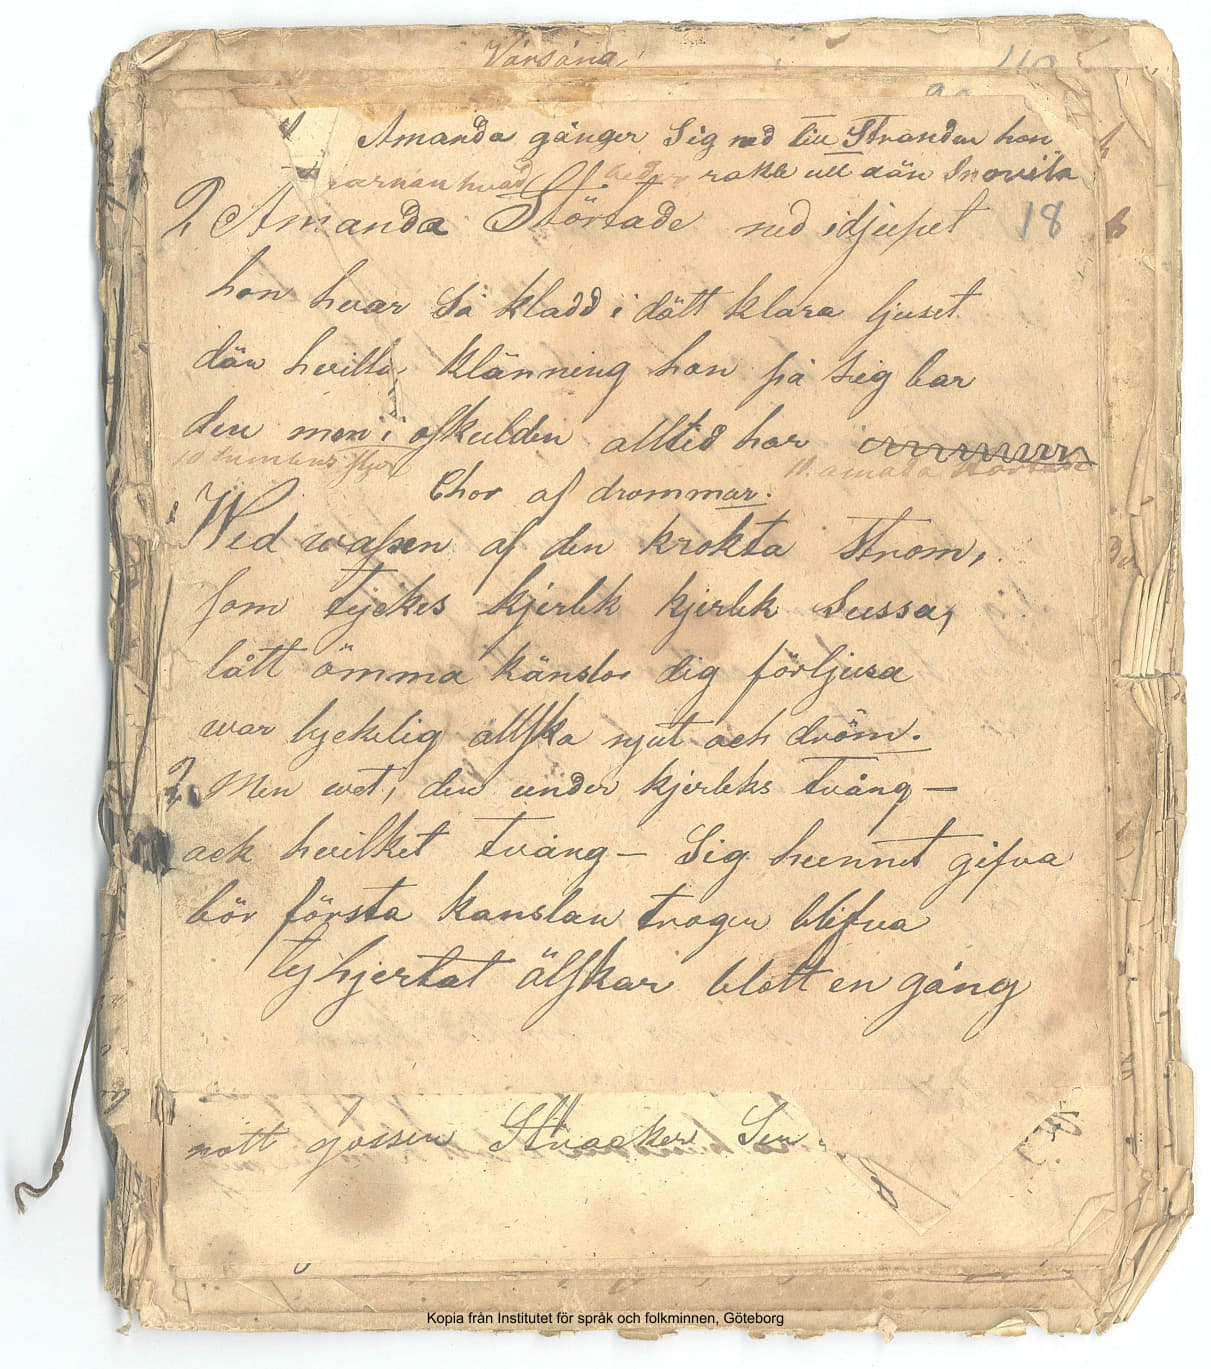 Vårsång
1 Amanda gånger Sig ned till Stranden hon
rakt ut dän
2 Amanda Störtade ned i djupet 18
hon hvar Så kladd i dätt klara ljuset
dän hvitta klänning hon på sig bar
den men i ofkulden alltid har
Chor af drommar.
1 Wed wafsen af den krokta Strom,
Som tyckes kjerlik kjerlek Sussa,
lått ömma känslor dig förljusa
war lyckelig allska njut och dröm.
2 Men wet, den under kjerleks tvång —
ack hvilket tvång — Sig hunnet gifva
bör första kanslan trogen blifva
ty hjertat älskar blott en gång
nött gossen Sen
Kopia från Institutet för språk och folkminnen, Göteborg